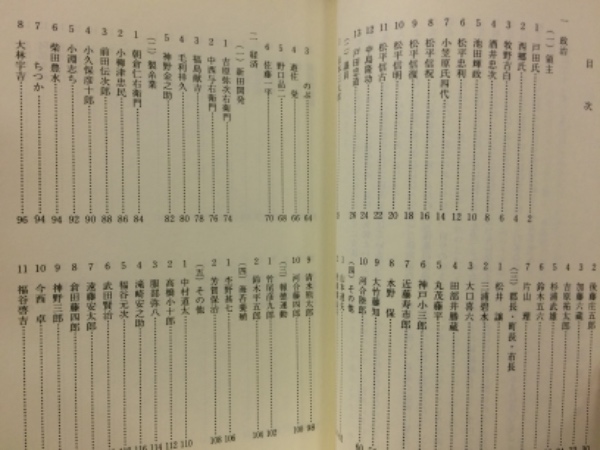 目次
一 政治
(一) 領主
1 戸田氏 2
2 西郷氏 4
3 牧野古白 6
4 酒井忠次 8
5 池田輝政
6 松平忠利 10
7 小笠原氏四代 12
8 松平信祝 14
9 松平信復 16
10 松平信明 18
11 松平信古 20
12 中島隆功 22
13 戸田忠道 24
2 後藤庄五郎
3 加藤六蔵
4 吉原祐太郎
5 杉浦武雄
6 鈴木五六
7 片山理
(三) 郡長・町長・市長
1 松井譲
2 三浦碧水
3 大口喜六
4 田部井勝蔵
5 丸茂藤平
6 神戸小三郎
7 近藤寿市郎
8 水野保
9 大竹藤知
10 河合陸郎
(四) その他
3 のぶ 64
4 遊佐発 66
5 野口品二 68
6 佐藤一平 70
二 経済
(一) 新田開発
1 吉原弥次右衛門 74
2 中西与右衛門 76
3 福島献吉 78
4 毛利祥久 80
5 神野金之助 82
(二) 製糸業
1 朝倉仁右衛門 84
2 小柳津忠民 86
3 前田伝次郎 88
4 小久保彦十郎 90
5 小淵志ち 92
6 柴田豊水 94
7 ちつか 94
8 大林宇吉 96
9 清水熊太郎 98
10 河合藤四郎
(三) 報徳運動
1 竹尾彦九郎 102
2 鈴木平五郎
(四) 海苔養殖
1 李野甚七 106
2 芳賀保治 108
(五) その他
1 中村道太 110
2 高橋小十郎 112
3 服部弥八 114
4 滝崎安之助
5 福谷元次
6 武田賢治
7 遠藤安太郎
8 倉田藤四郎
9 神野三郎
10 今西卓
11 福谷啓吉